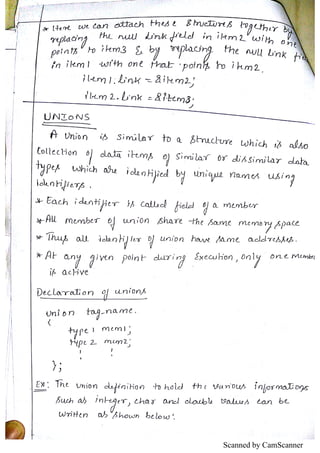 * Here we can attach these structures together by
replacing the null link field in item2 with one
points to item3 & by replacing the null link
in item1 with one that points to item2.
item1.link = &item2;
item2.link = &item3;
UNIONS
A Union is similar to a structure which is also
Collection of data items of similar or dissimilar data
types which are identified by unique names using
identifiers.
* Each identifier is called field of a member
* All member of union share the same memory space
* Thus all identifier of union have same addresses.
* At any given point during Execution, only one member
is active
Declaration of unions
Union tag-name.
{
type 1 mem1;
type 2 mem2;
! !
};
Ex: The union definition to hold the various informations
such as integer, char and double values can be
written as shown below:
Scanned by CamScanner